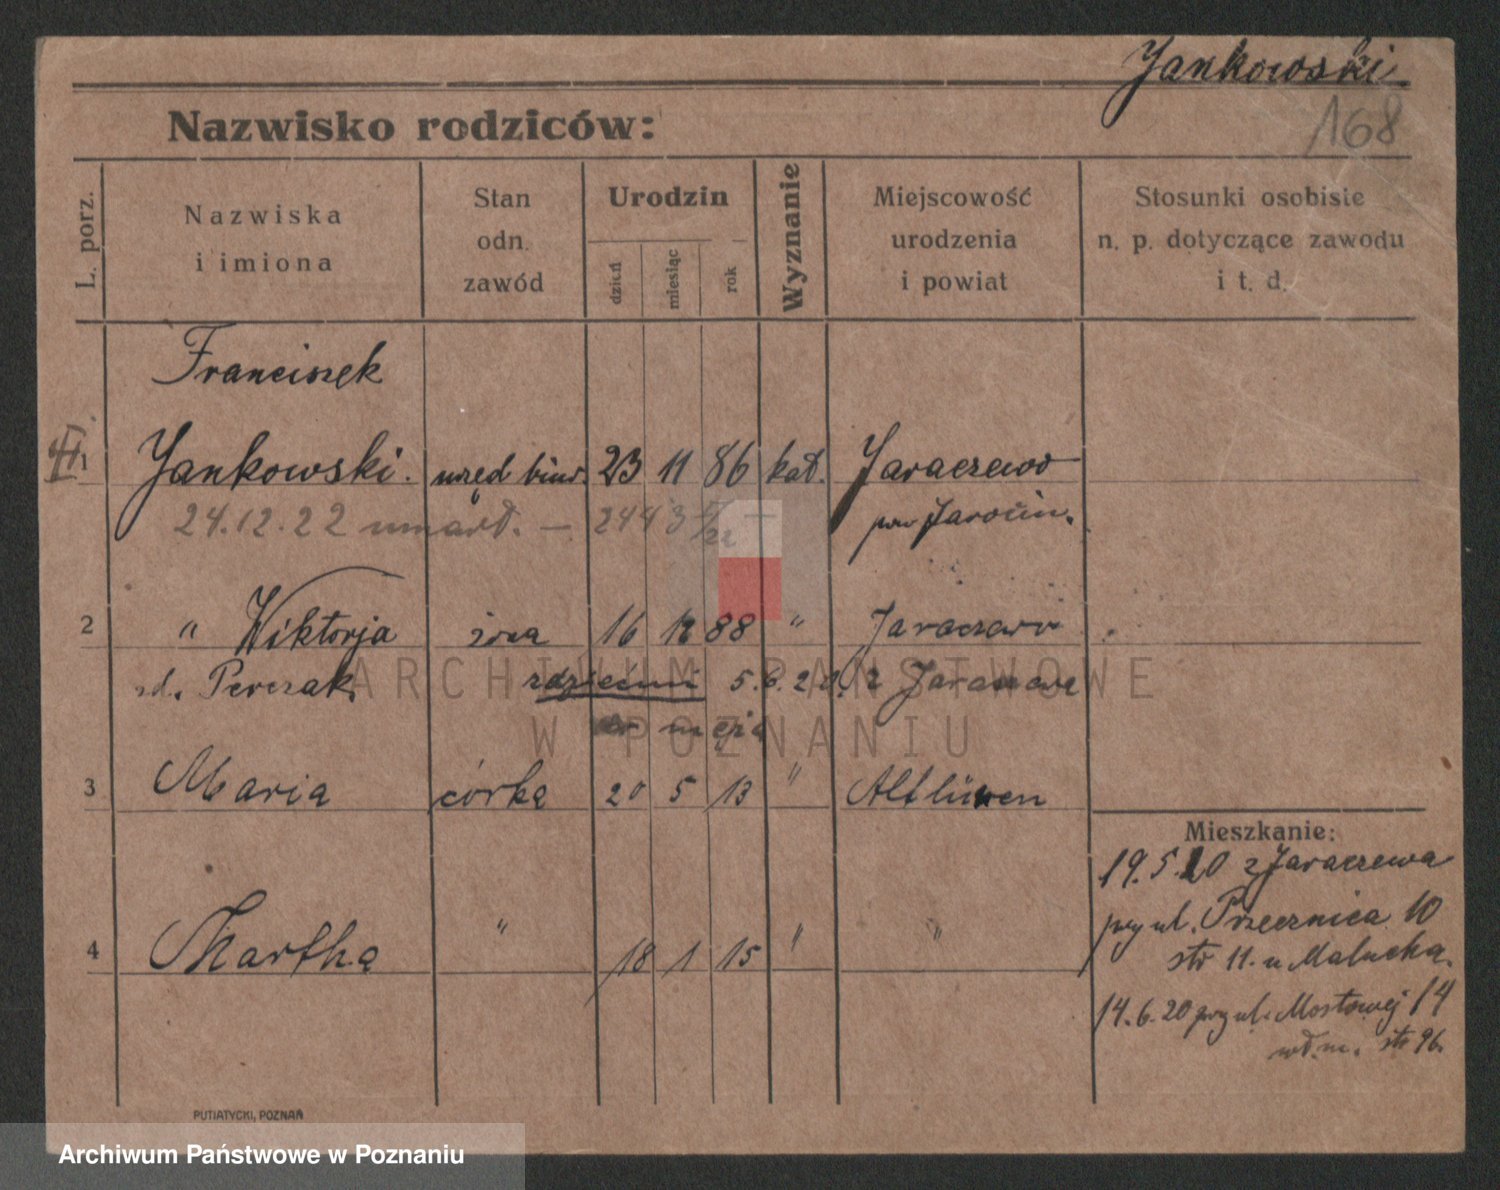 Jankowski
168
Nazwisko rodziców:
L. porz.
Nazwiska
i imiona
Stan
odn.
zawód
Urodzin
dzień
miesiąc
rok
Wyznanie
Miejscowość
urodzenia
i powiat
Stosunki osobiste
n. p. dotyczące zawodu
i t. d.
Franciszek
1 Jankowski. urzęd biur. 23 11 86 kat. Jaraczewo
24.12.22 umarł. —
pow Jarocin.
2 " Wiktorja żona 16 12 88 " Jaraczewo
zd. Perczak. z dziećmi 5.6.20. z Jaraczewa
do męża
3 Maria córka 20 5 13 " Altlüwen
Mieszkanie:
19.5.20 z Jaraczewa
przy ul. Przecznica 10
str 11. u Malucha.
4 Martha " 18 1 15 " "
14.6.20 przy ul. Mostowej 14
wł. m. str 96.
PUTIATYCKI, POZNAŃ
ARCHIWUM PAŃSTWOWE
W POZNANIU
Archiwum Państwowe w Poznaniu